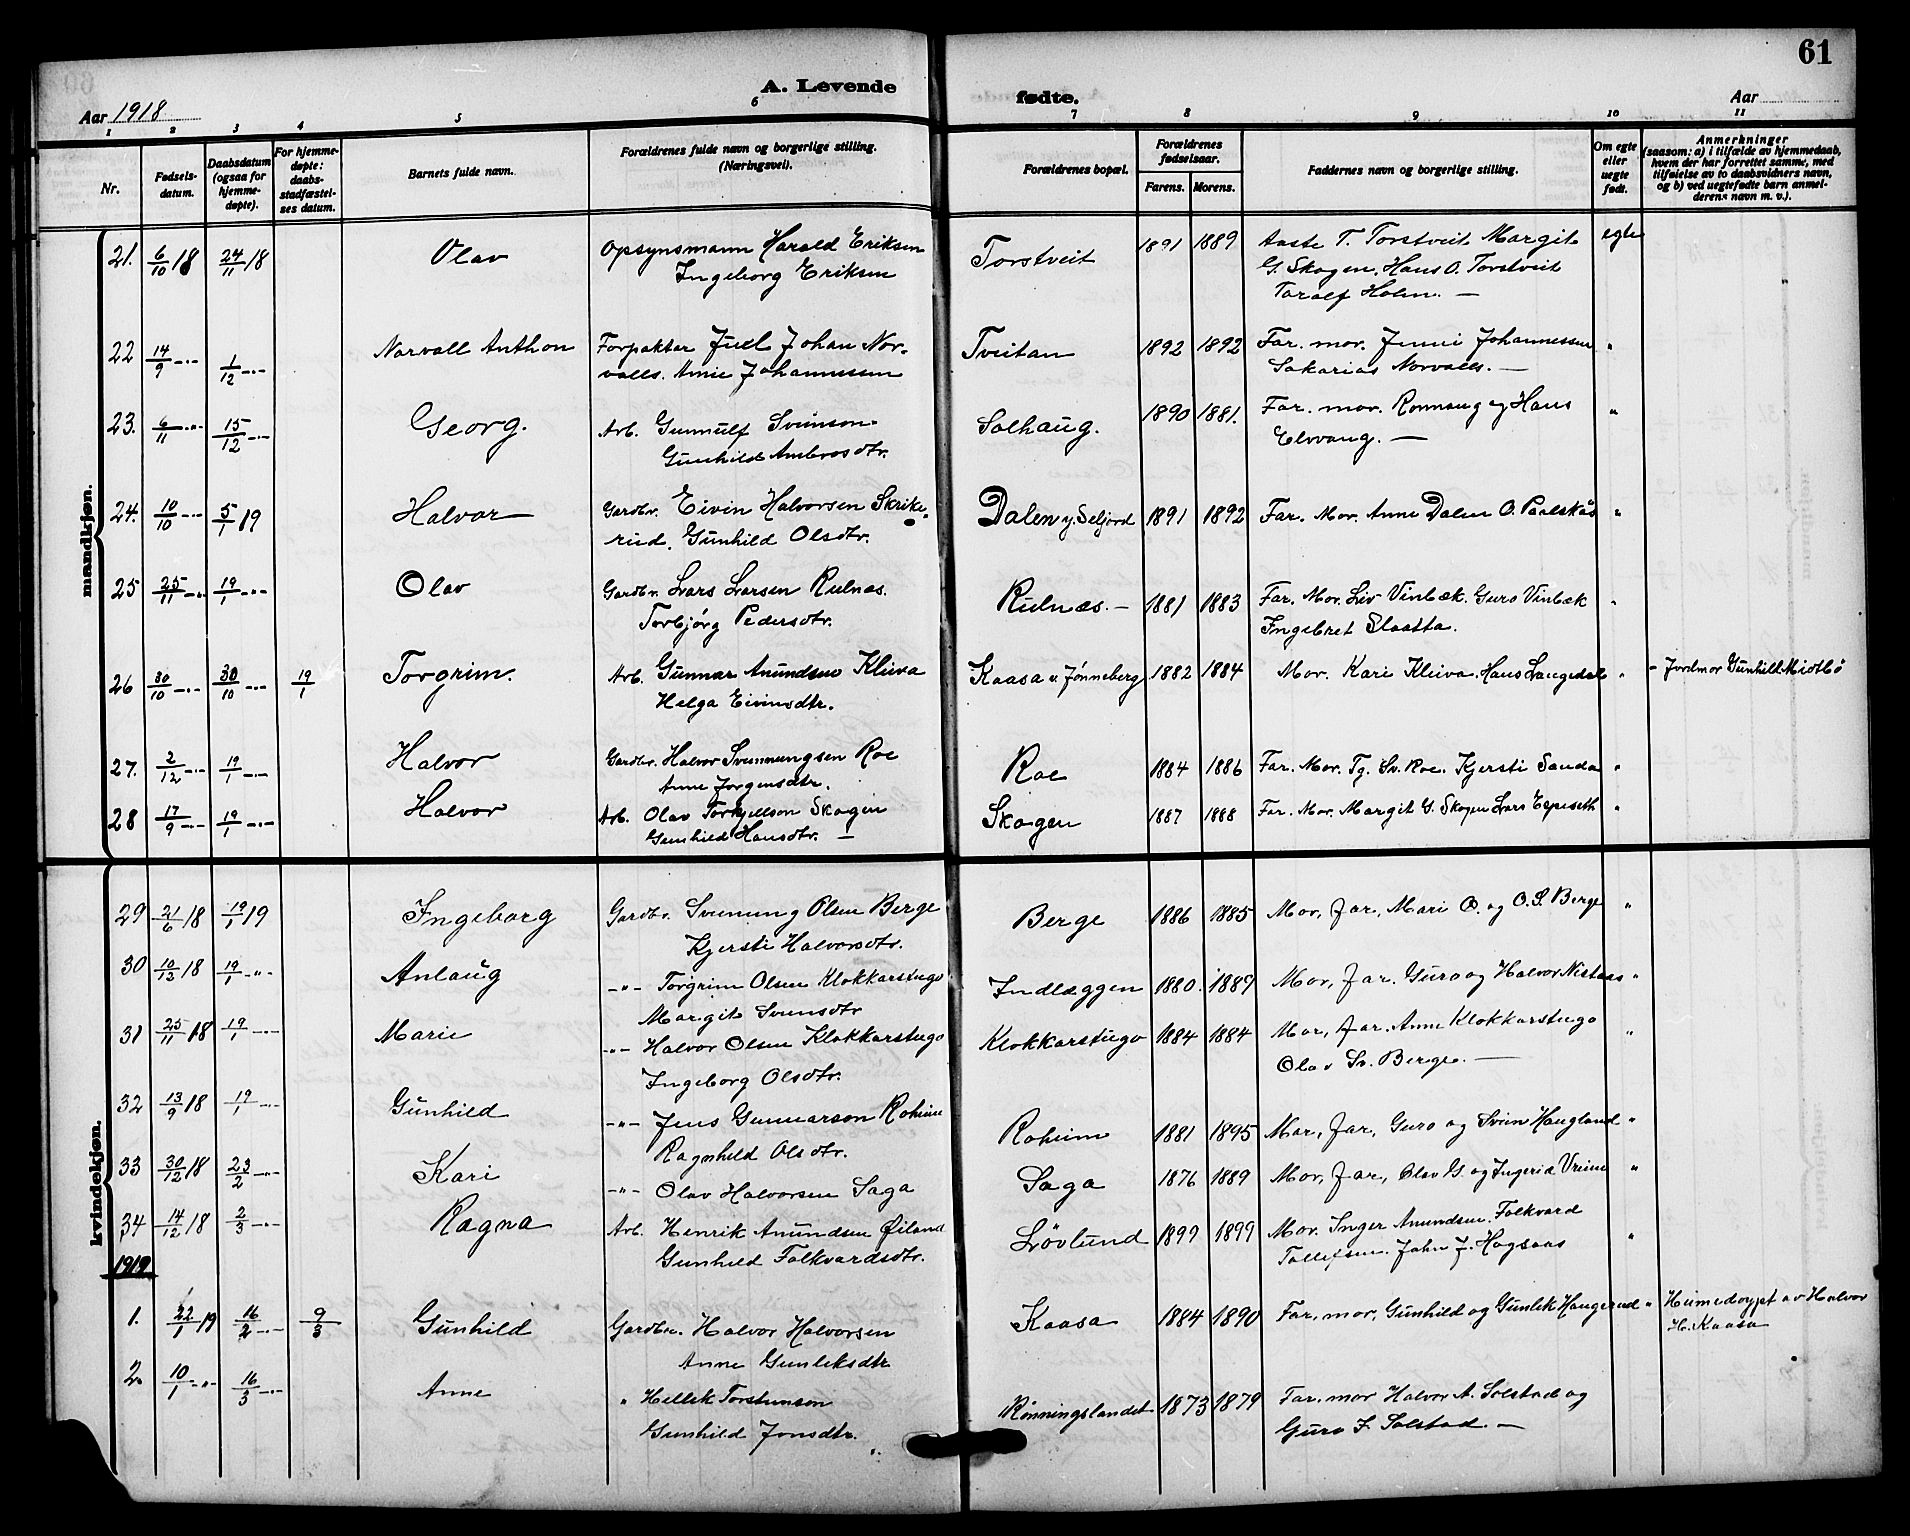 61
A. Levende fødte.
Aar 1918
Aar
1 2 3 4 5 6 7 8 9 10 11
Nr.
Fødsels-
datum.
Daabsdatum
(ogsaa for
hjemme-
døpte).
For hjemme-
døpte:
daabs-
stadfæstel-
ses datum.
Barnets fulde navn.
Forældrenes fulde navn og borgerlige stilling.
(Næringsvei).
Forældrenes bopæl.
Forældrenes
fødselsaar.
Farens. Morens.
Faddernes navn og borgerlige stilling.
Om egte
eller
uegte
født.
Anmerkninger
(saasom: a) i tilfælde av hjemmedaab,
hvem der har forrettet samme, med
tilføielse av to daabsvidners navn,
og b) ved uegtefødte barn anmel-
derens navn m. v.).
mandkjøn.
21. 6/10 18 24/11 18 Olav Opsynsmann Harald Eriksen Torstveit 1891 1889 Aaste T. Torstveit Margit egte
Ingeborg Eriksen G. Skogen, Hans O. Torstveit
Taralf Holm. —
22 14/9 -"- 1/12 -"- Norvall Anthon Forpakter Juel Johan Nor- Tveitan 1892 1892 Far. mor. Jenni Johannessen "
valls. Amie Johannessen Sakarias Norvalls. —
23. 6/11 -"- 15/12 -"- Georg. Arb. Gunnulf Sveinson Solhaug. 1890 1881. Far. mor. Ronnaug og Hans "
Gunhild Ambrosdtr. Elvvang. —
24. 10/10 -"- 5/1 19 Halvor Gardbr. Eivin Halvorsen Skrike- Dalen y. Seljord 1891 1892 Far. Mor. Anne Dalen O. Paalskås "
rud. Gunhild Olsdtr.
25 25/11 -"- 19/1 -"- Olav Gardbr. Lars Larsen Rulnæs. Rulnæs. — 1881 1883 Far. Mor. Liv Vinbæk. Guro Vinbæk "
Torbjörg Pedersdtr. Ingebret Slaatta.
26 30/10 -"- 30/10 -"- 19/1 Torgrim. Arb. Gunnar Anundsen Kleiva Kaasa u. Jønneberg 1882 1884 Mor. Kari Kleiva. Hans Langedal " - Jordmor Gunhild Midtbö
Helga Eivinsdtr.
27. 2/12 -"- 19/1 -"- Halvor Gardbr. Halvor Svennungsen Roe Roe 1884 1886 Far. Mor. Tg. Sv. Roe. Kjersti Sanda "
Anne Jorgensdtr.
28 17/9 -"- 19/1 -"- Halvor Arb. Olav Torkjellson Skogen Skogen 1887 1888 Far. Mor. Margit G. Skogen Lars Espeseth "
Gunhild Hansdtr. —
kvindekjøn.
29 21/6 18 19/1 19 Ingeborg Gardbr. Svenung Olsen Berge Berge 1886 1885 Mor, far, Mari O. og O. S. Berge "
Kjersti Halvorsdtr.
30 10/12 18 19/1 -"- Anlaug -"- Torgrim Olsen Klokkarstugo Indlæggen 1880. 1889 Mor, far. Guro og Halvor Nistaas "
Margit Svensdtr
31 25/11 18 19/1 -"- Marie -"- Halvor Olsen Klokkarstugo Klokkarstugo 1884 1884 Mor, far. Anne Klokkarstugo "
Ingeborg Olsdtr. Olav Sv. Berge. —
32 13/9 18 19/1 -"- Gunhild -"- Jens Gunnarson Roheim Roheim 1881 1895 Mor, far, Guro og Svein Haugland "
Ragnhild Olsdtr.
33 30/12 18 23/2 -"- Kari -"- Olav Halvorsen Saga Saga 1876 1889 Mor, far, Olav G. og Ingerid Vreim "
34 14/12 18 2/3 -"- Ragna Arb. Henrik Anundsen Øiland Lövlund 1899 1899 Mor. Inger Anundsen. Folkvard "
Gunhild Folkvardsdtr. Tollefsen. John J. Hagsaas
1919
1. 22/1 19 16/2 -"- 9/3 Gunhild Gardbr. Halvor Halvorsen Kaasa 1884 1890 Far, mor, Gunhild og Gunlek Haugerud " Heimedoypt av Halvor
Anne Gunleksdtr H. Kaasa
2. 10/1 -"- 16/3 -"- Anne " Hellek Torstenson Rönningslandet 1873 1879 Far. mor Halvor A. Solstad og
Gunhild Jonsdtr. Guro J. Solstad. —